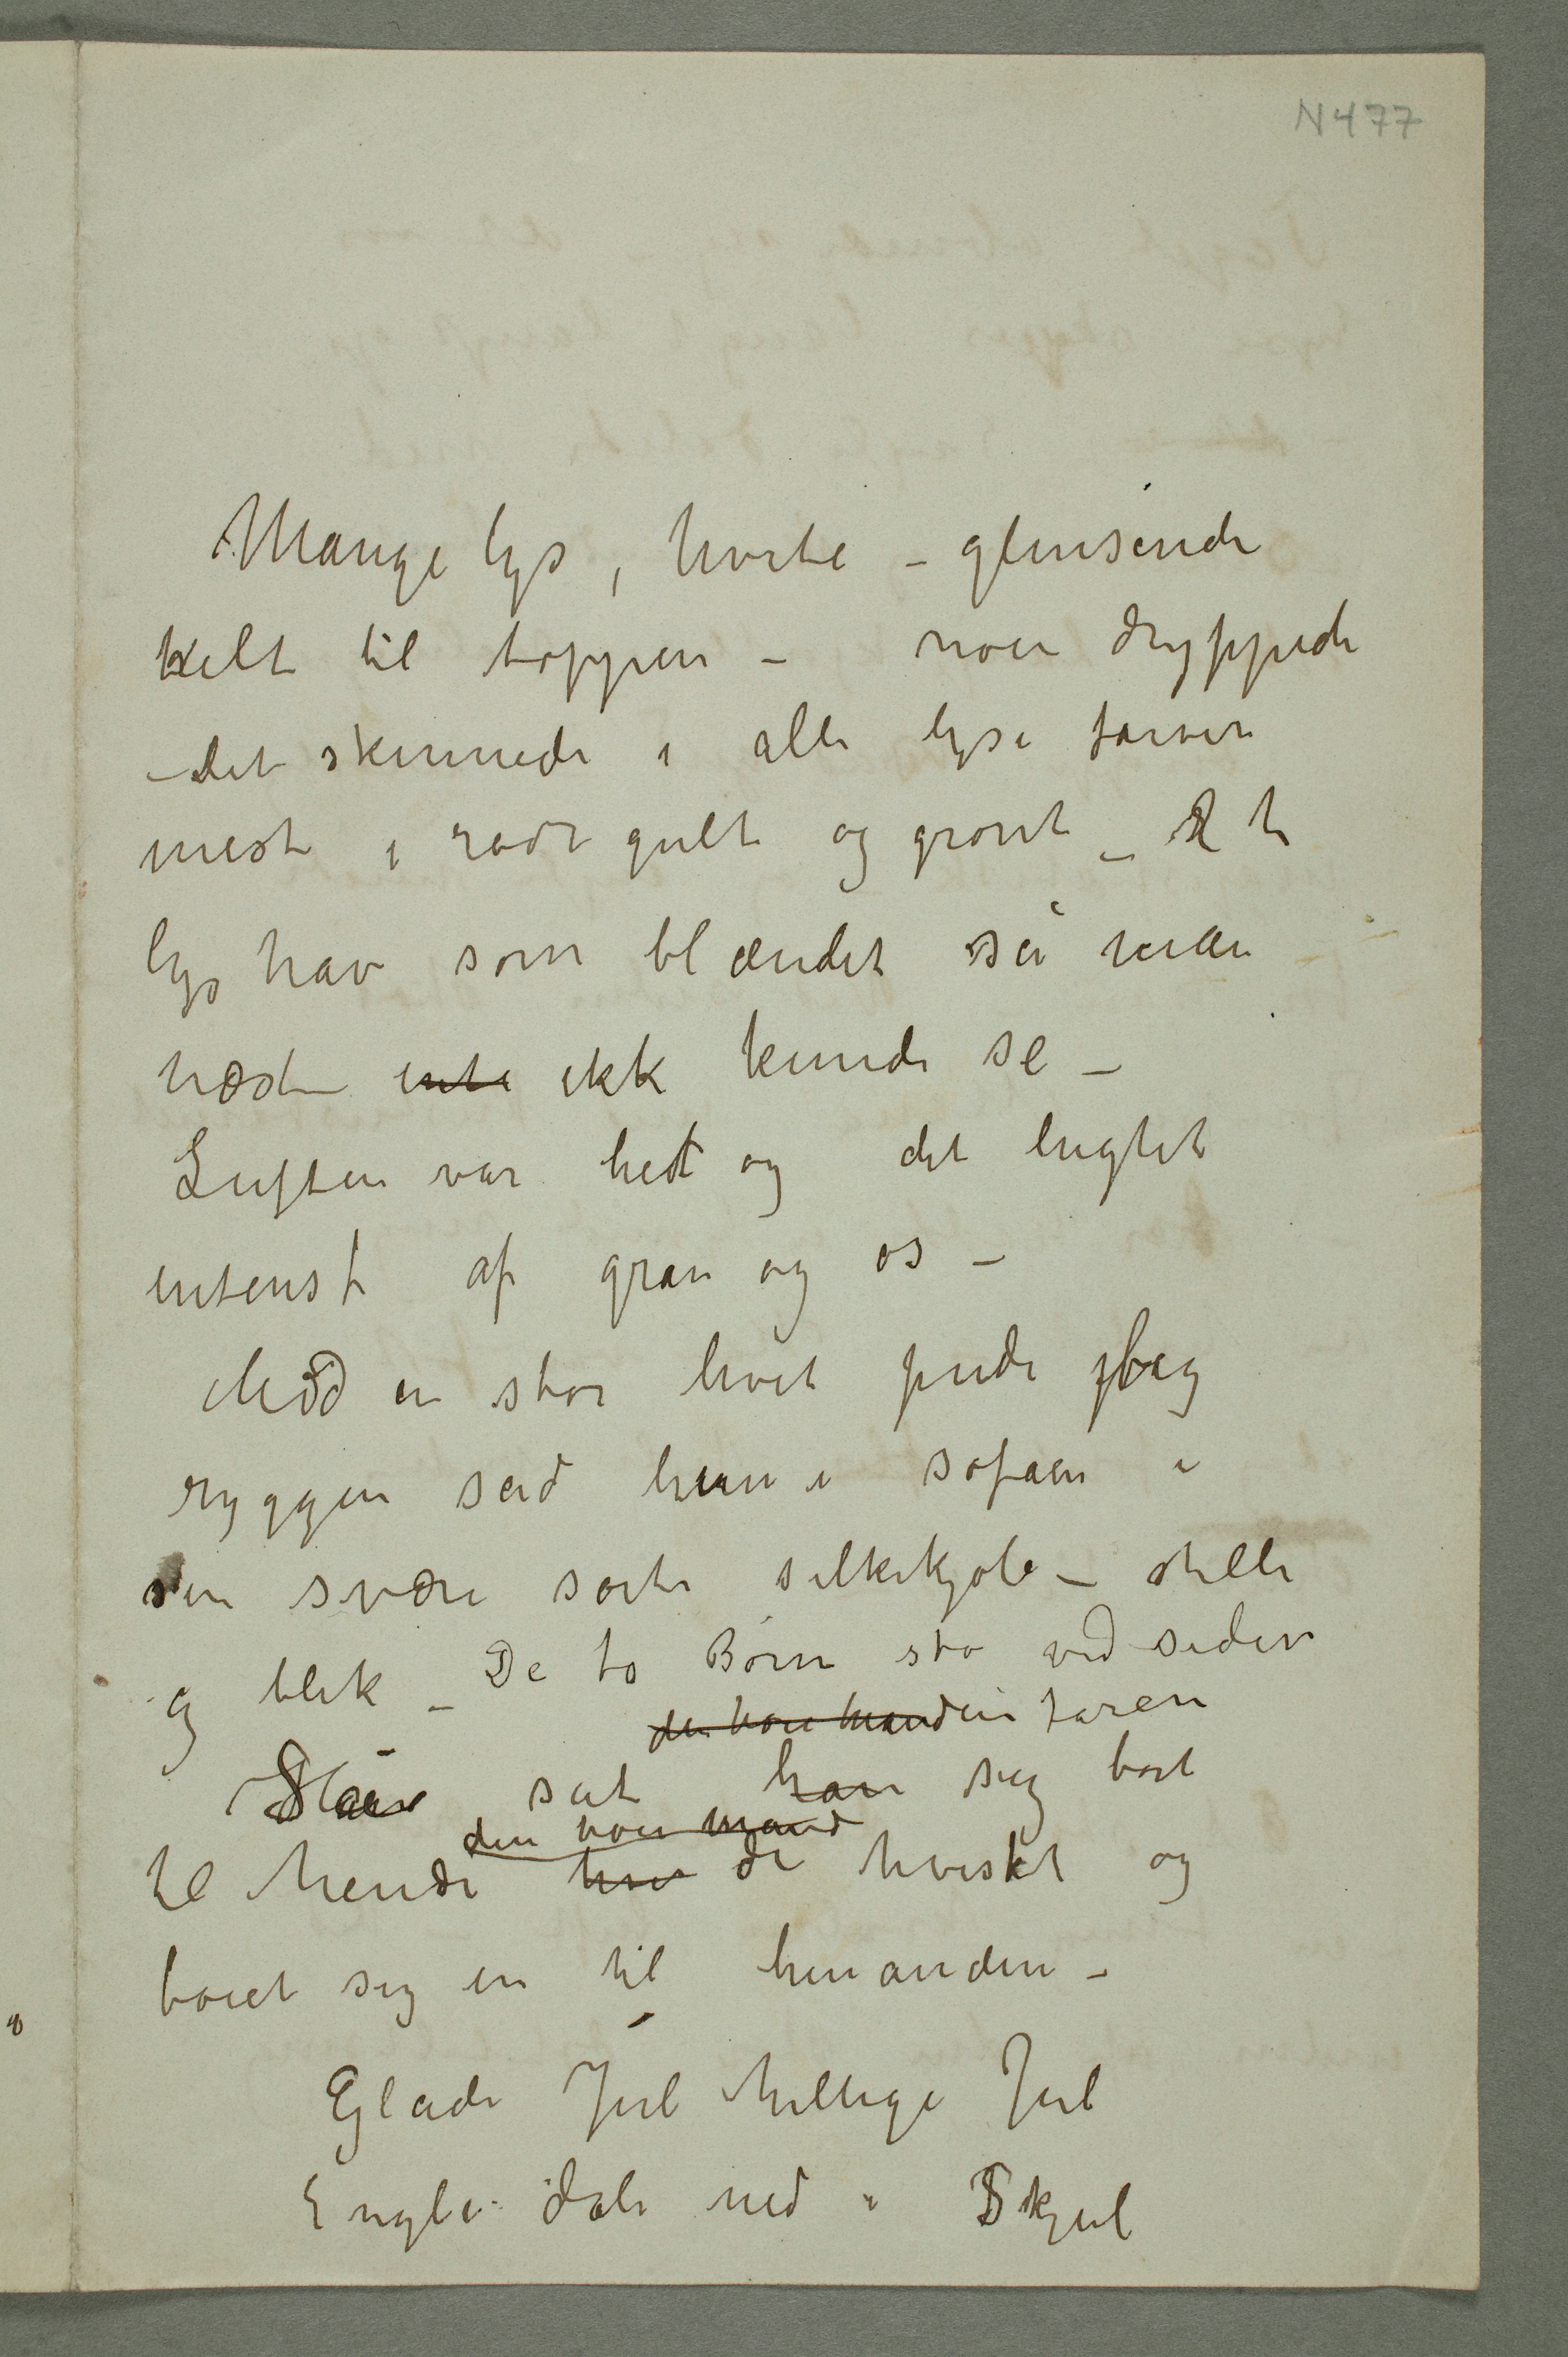 N 477
Mange lys, hvite – glinsende
helt til toppen – noen dryppede
– det skinnede i alle lyse farver
mest i rødt gult og grønt – Et
lyshav som blændet så man
næsten inte ikk kunde se –
Luften var hed og det lugtet
intenst af gran og os –
Med en stor hvit pude bag
ryggen sad hun i sofaen i
sin svære sorte silkekjole – stille
og blek – De to Børn sto ved siden
den høie manden faren
sat han seg bort
den høie mand
til hende hun de hvisket og
bøiet sig en til hinanden –
Glade Jul hellige Jul
Engle dale ned i Skjul